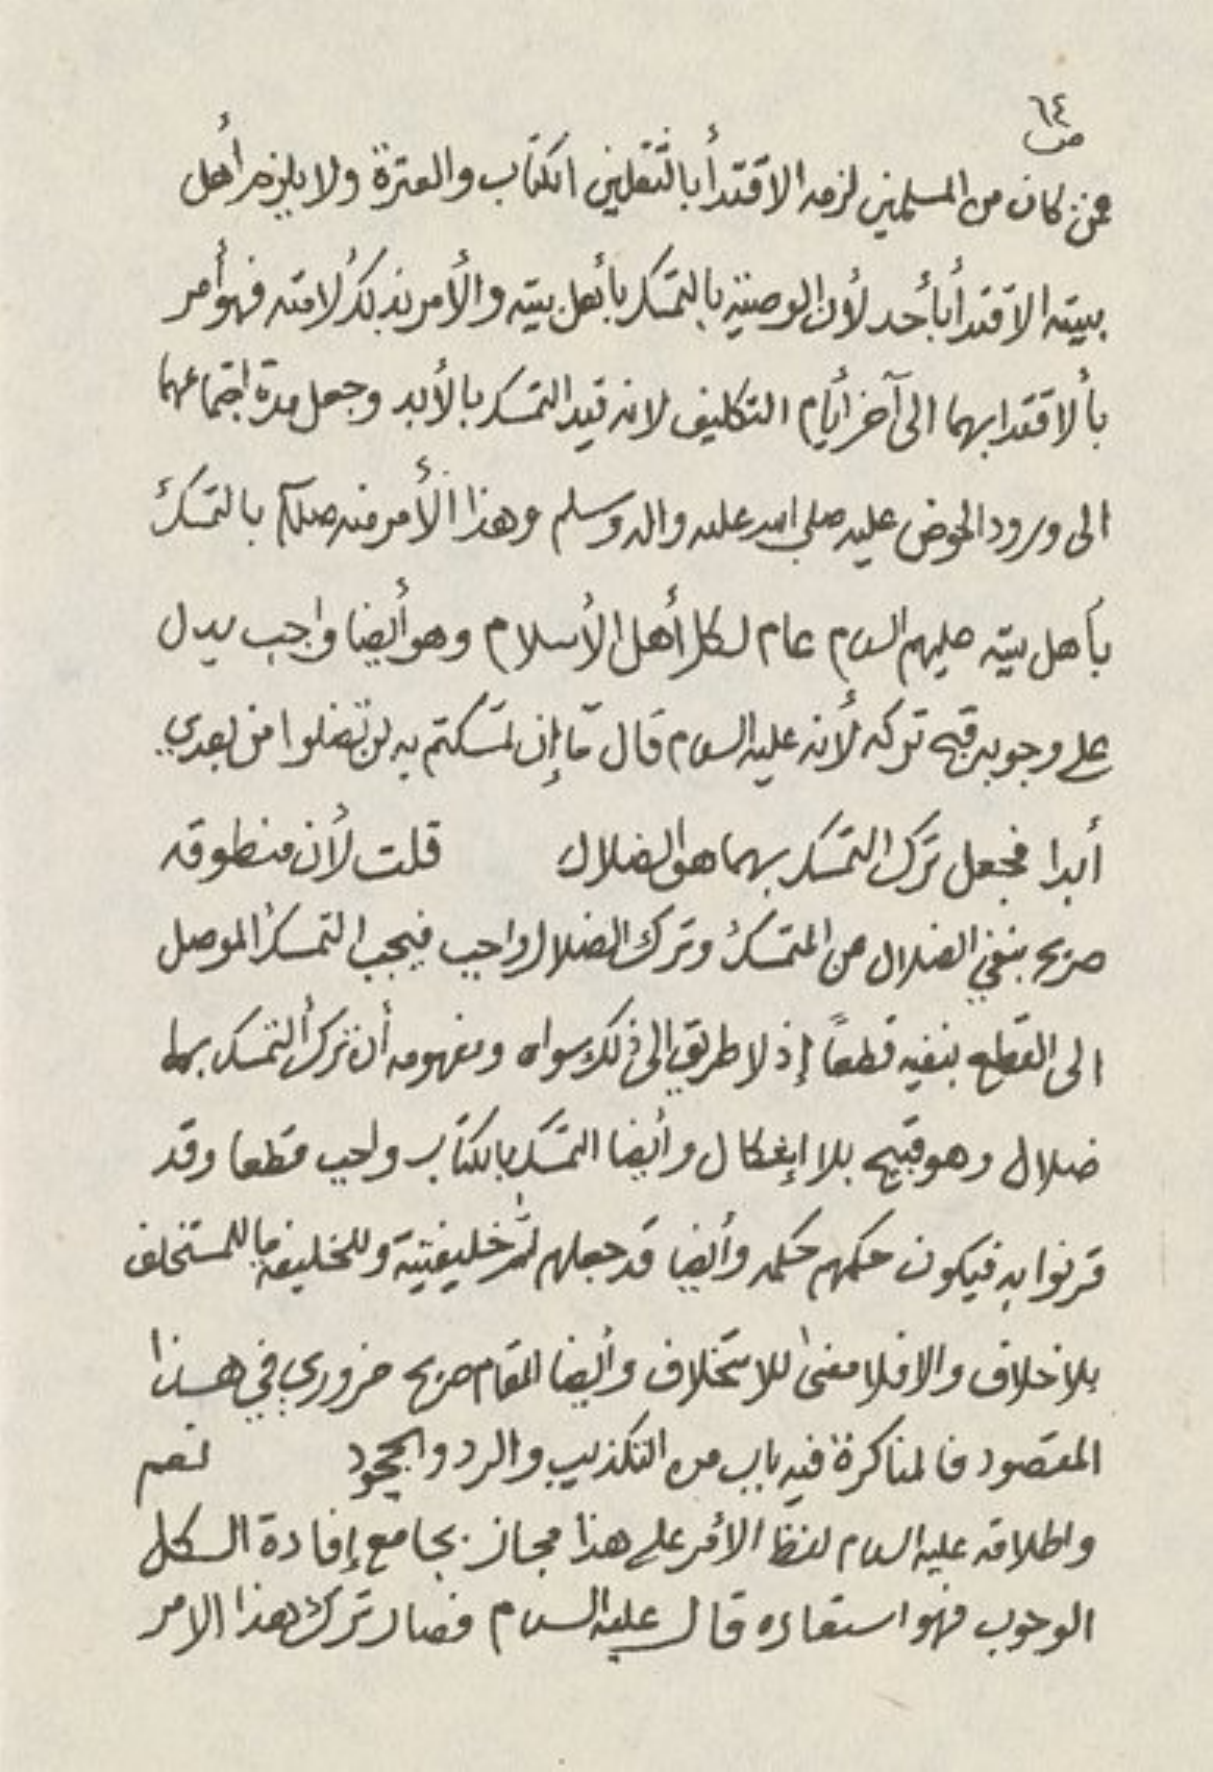 ٦٤
ص
فمن كان من المسلمين لزمه الاقتدأ بالثقلين الكتاب والعترة ولا يلزم أهل
بيته الاقتدأ بأحد لأن الوصية بالتمسك بأهل بيته والأمر بذلك لامته فهو أمر
بألاقتدا بهما الى آخر أيام التكليف لانه قيد التمسك بالأبد وجعل مدة اجتماعهما
الى ورود الحوض عليه صلى الله عليه واله وسلم وهذا الأمر منه صللم بالتمسك
بأهل بيته عليهم السلام عام لكل أهل الأسلام وهو أيضا واجب يدل
على وجوبه قبح تركه لأنه عليه السلام قال مّا إن تمسكتم به لن تضلوا من بعدي
أبدا فجعل ترك التمسك بهما هو الضلال قلت لأن منطوقه
صريح بنفي الضلال عن المتمسك وترك الضلال واجب فيجب التمسك الموصل
الى القطع بنفيه قطعاً إذ لا طريق الى ذلك سواه ومفهومه أن ترك ألتمسك بهما
ضلال وهو قبيح بلا إشكال وأيضا التمسك بالكتاب واجب قطعا وقد
قرنوا به فيكون حكمهم حكمه وأيضا قد جعلهم خليفتيه وللخليفه ما للمستخلف
بلا خلاف والا فلا معنى للاستخلاف وأيضا المقام صريح ضروري في هذا
المقصود فالمناكرة فيه باب من التكذيب والرد والجحود نعم
واطلاقه عليه السلام لفظ الأمر على هذا مجاز بجامع إفادة الكل
الوجوب فهو استعاره قال عليه السلام فصار ترك هذا الامر